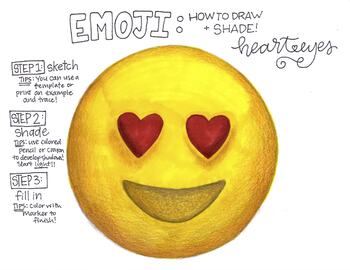 EMOJI: HOW TO DRAW
+ SHADE!
heart eyes
STEP 1: sketch
TIPS: You can use a
template or
print an example
and trace!
STEP 2:
shade
TIPS: use colored
pencil or crayon
to develop shadow!
Start light!!
STEP 3:
fill in
TIPS: Color with
Marker to
finish!